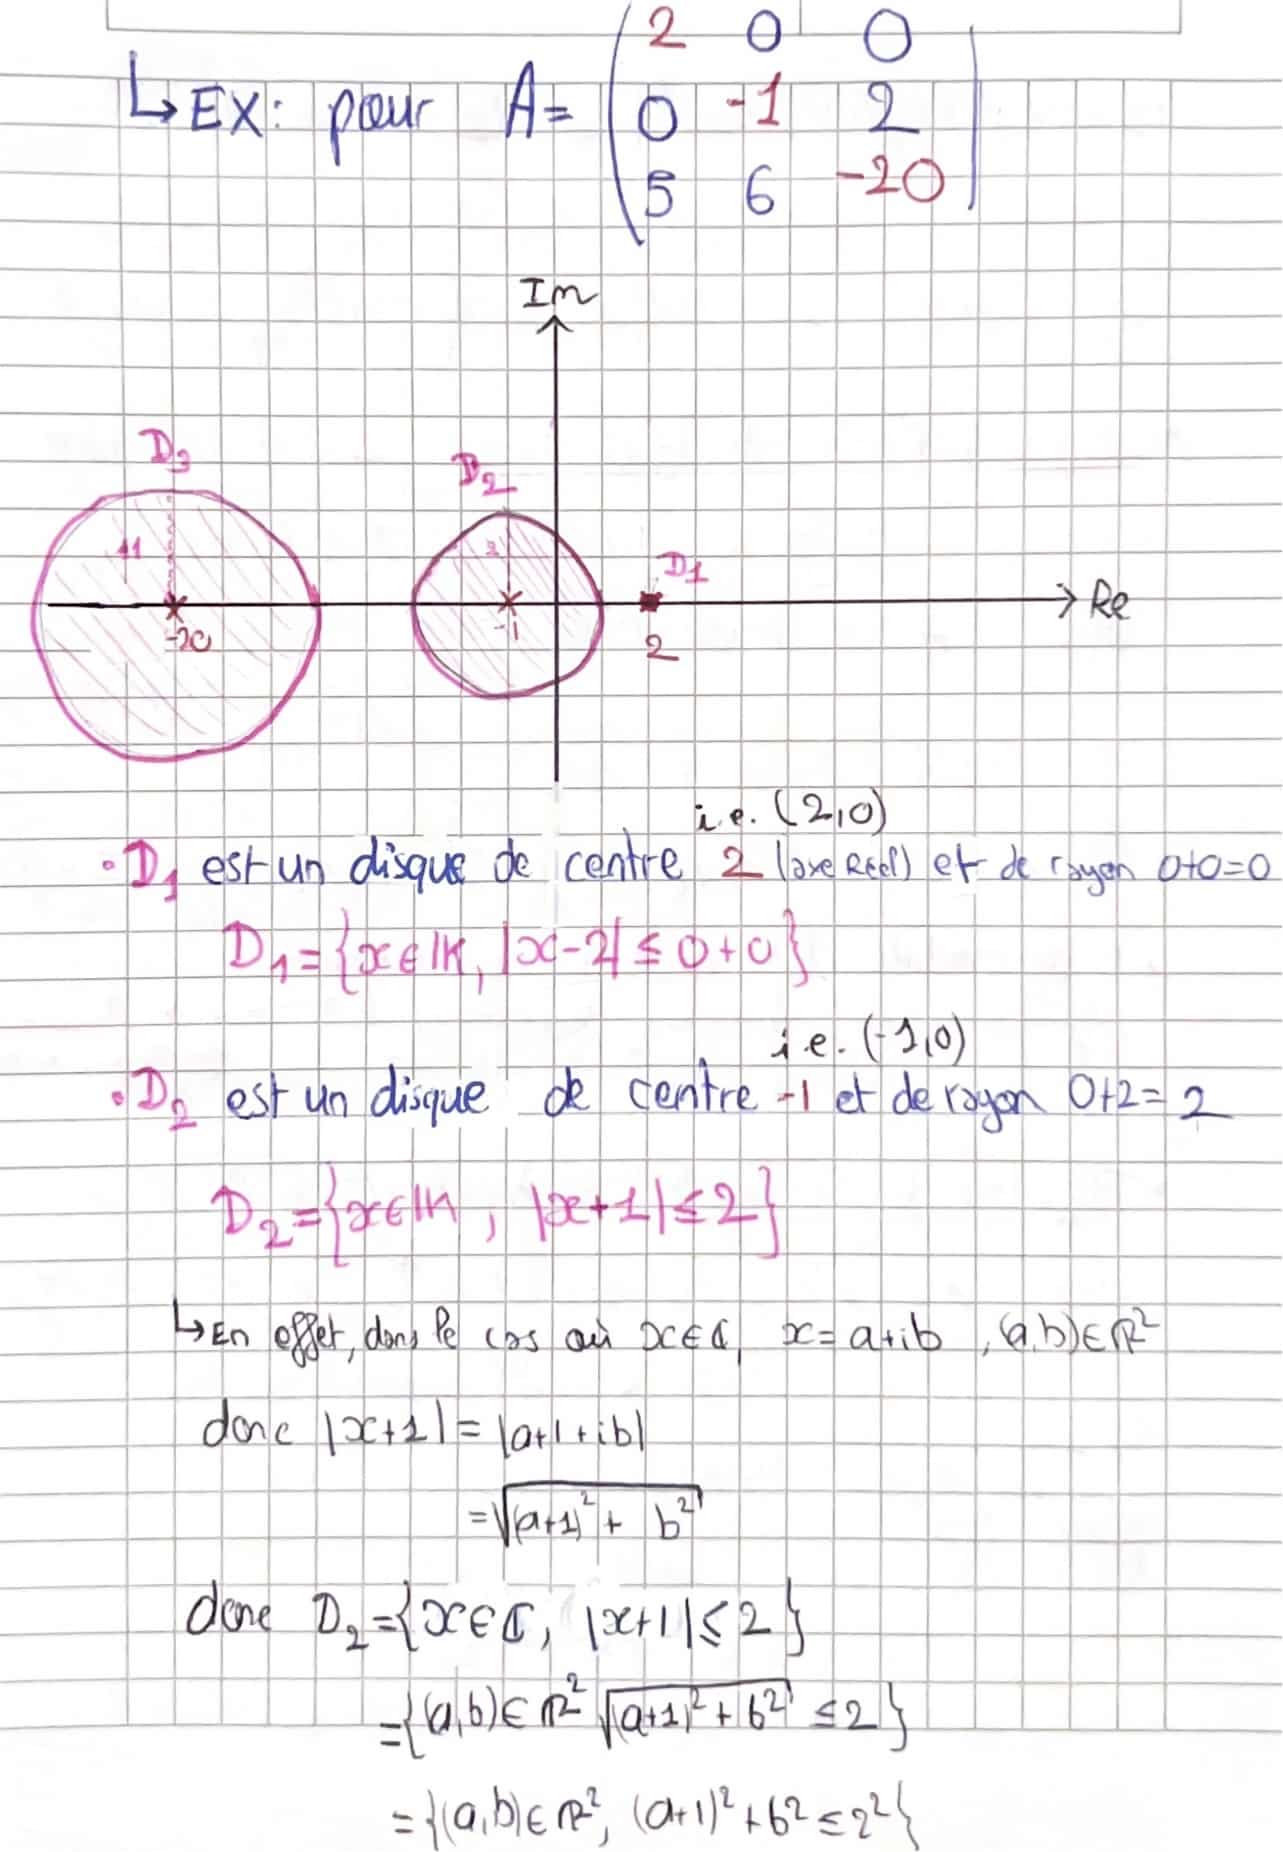 2 0 0
↳ EX: pour A= 0 -1 2
5 6 -20
Im
D3
D2
11
2
D1
Re
-20
-1
2
i.e. (2,0)
• D1 est un disque de centre 2 (axe Réel) et de rayon 0+0=0
D1={x∈IK, |x-2| ≤ 0+0}
i.e. (-1,0)
• D2 est un disque de centre -1 et de rayon 0+2=2
D2={x∈IK, |x+1| ≤ 2}
↳ En effet, dans le cas où x∈ℂ, x=a+ib, (a,b)∈ℝ²
donc |x+1| = |a+1+ib|
=√((a+1)² + b²)
donc D2={x∈ℂ, |x+1| ≤ 2}
={(a,b)∈ℝ² √((a+1)²+b²) ≤2}
={(a,b)∈ℝ², (a+1)²+b² ≤2²}